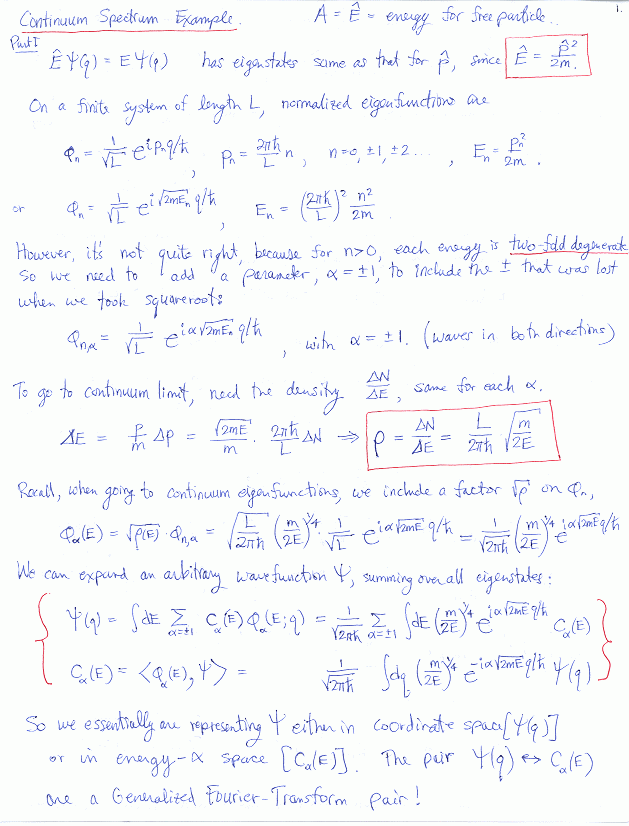 Continuum Spectrum Example. A = Ê = energy for free particle.. 1.
Part I
Ê Ψ(q) = E Ψ(q) has eigenstates same as that for p̂, since Ê = p̂²/2m.
On a finite system of length L, normalized eigenfunctions are
φₙ = 1/√L e^{i pₙq/ħ}, pₙ = 2πħ/L n, n=0, ±1, ±2 ..., Eₙ = pₙ²/2m.
or φₙ = 1/√L e^{i√(2mEₙ) q/ħ}, Eₙ = (2πħ/L)² n²/2m
However, it's not quite right, because for n>0, each energy is two-fold degenerate
So we need to add a parameter, α = ±1, to include the ± that was lost
when we took squareroot:
φₙ,α = 1/√L e^{iα√(2mEₙ) q/ħ}, with α = ±1. (waves in both directions)
To go to continuum limit, need the density ΔN/ΔE, same for each α.
ΔE = p/m Δp = √(2mE)/m · 2πħ/L ΔN ⇒ ρ = ΔN/ΔE = L/2πħ √(m/2E)
Recall, when going to continuum eigenfunctions, we include a factor √ρ on φₙ,
φ_α(E) = √ρ(E) · φₙ,α = √(L/2πħ) (m/2E)^{1/4} · 1/√L e^{iα√(2mE) q/ħ} = 1/√(2πħ) (m/2E)^{1/4} e^{iα√(2mE) q/ħ}
We can expand an arbitrary wavefunction Ψ, summing over all eigenstates:
Ψ(q) = ∫dE Σ_{α=±1} C_α(E) φ_α(E;q) = 1/√(2πħ) Σ_{α=±1} ∫dE (m/2E)^{1/4} e^{iα√(2mE) q/ħ} C_α(E)
C_α(E) = <φ_α(E), Ψ> = 1/√(2πħ) ∫dq (m/2E)^{1/4} e^{-iα√(2mE) q/ħ} Ψ(q)
So we essentially are representing Ψ either in coordinate space [Ψ(q)]
or in energy-α space [C_α(E)]. The pair Ψ(q) ↔ C_α(E)
are a Generalized Fourier-Transform pair!